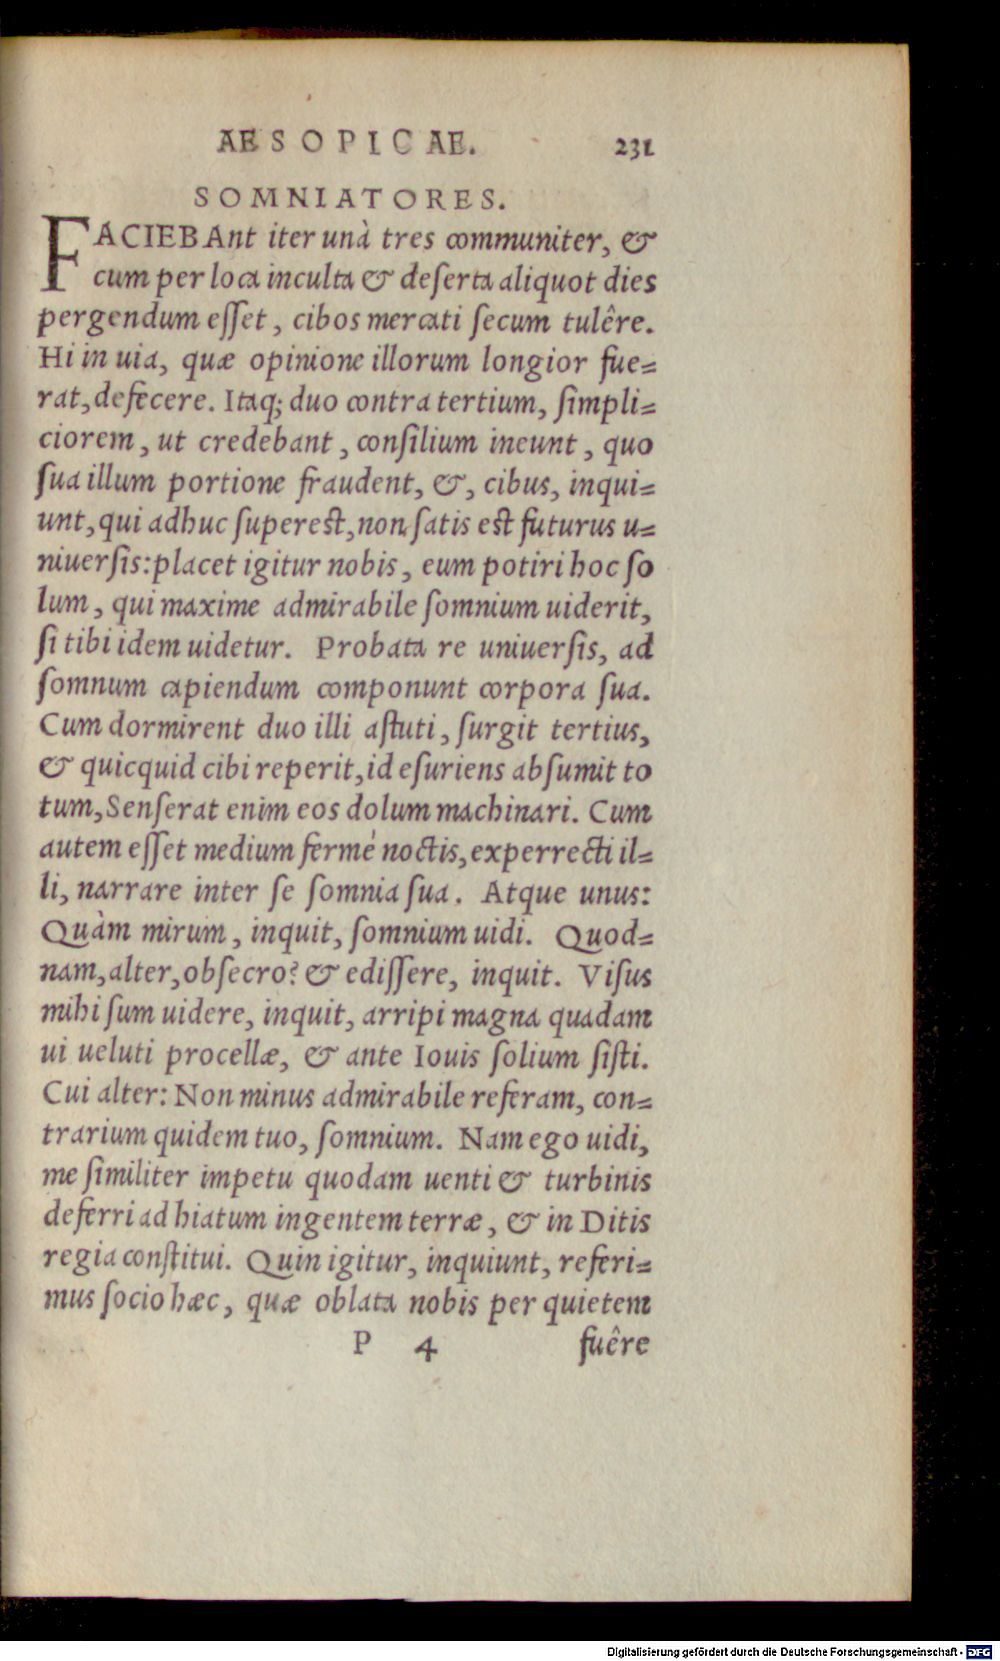 AESOPICAE. 231
SOMNIATORES.
FACIEBAnt iter unà tres communiter, &
cum per loca inculta & deſerta aliquot dies
pergendum eſſet, cibos mercati ſecum tulêre.
Hi in uia, quæ opinione illorum longior fue=
rat, defecere. Itaq; duo contra tertium, ſimpli=
ciorem, ut credebant, conſilium ineunt, quo
ſua illum portione fraudent, &, cibus, inqui=
unt, qui adhuc ſupereſt, non ſatis eſt futurus u=
niuerſis: placet igitur nobis, eum potiri hoc ſo
lum, qui maxime admirabile ſomnium uiderit,
ſi tibi idem uidetur. Probata re uniuerſis, ad
ſomnum capiendum componunt corpora ſua.
Cum dormirent duo illi aſtuti, ſurgit tertius,
& quicquid cibi reperit, id eſuriens abſumit to
tum, Senſerat enim eos dolum machinari. Cum
autem eſſet medium fermè noctis, experrecti il=
li, narrare inter ſe ſomnia ſua. Atque unus:
Quàm mirum, inquit, ſomnium uidi. Quod=
nam, alter, obſecro? & ediſſere, inquit. Viſus
mihi ſum uidere, inquit, arripi magna quadam
ui ueluti procellæ, & ante Iouis ſolium ſiſti.
Cui alter: Non minus admirabile referam, con=
trarium quidem tuo, ſomnium. Nam ego uidi,
me ſimiliter impetu quodam uenti & turbinis
deferri ad hiatum ingentem terræ, & in Ditis
regia conſtitui. Quin igitur, inquiunt, referi=
mus ſocio hæc, quæ oblata nobis per quietem
P 4 fuêre
Digitalisierung gefördert durch die Deutsche Forschungsgemeinschaft - DFG